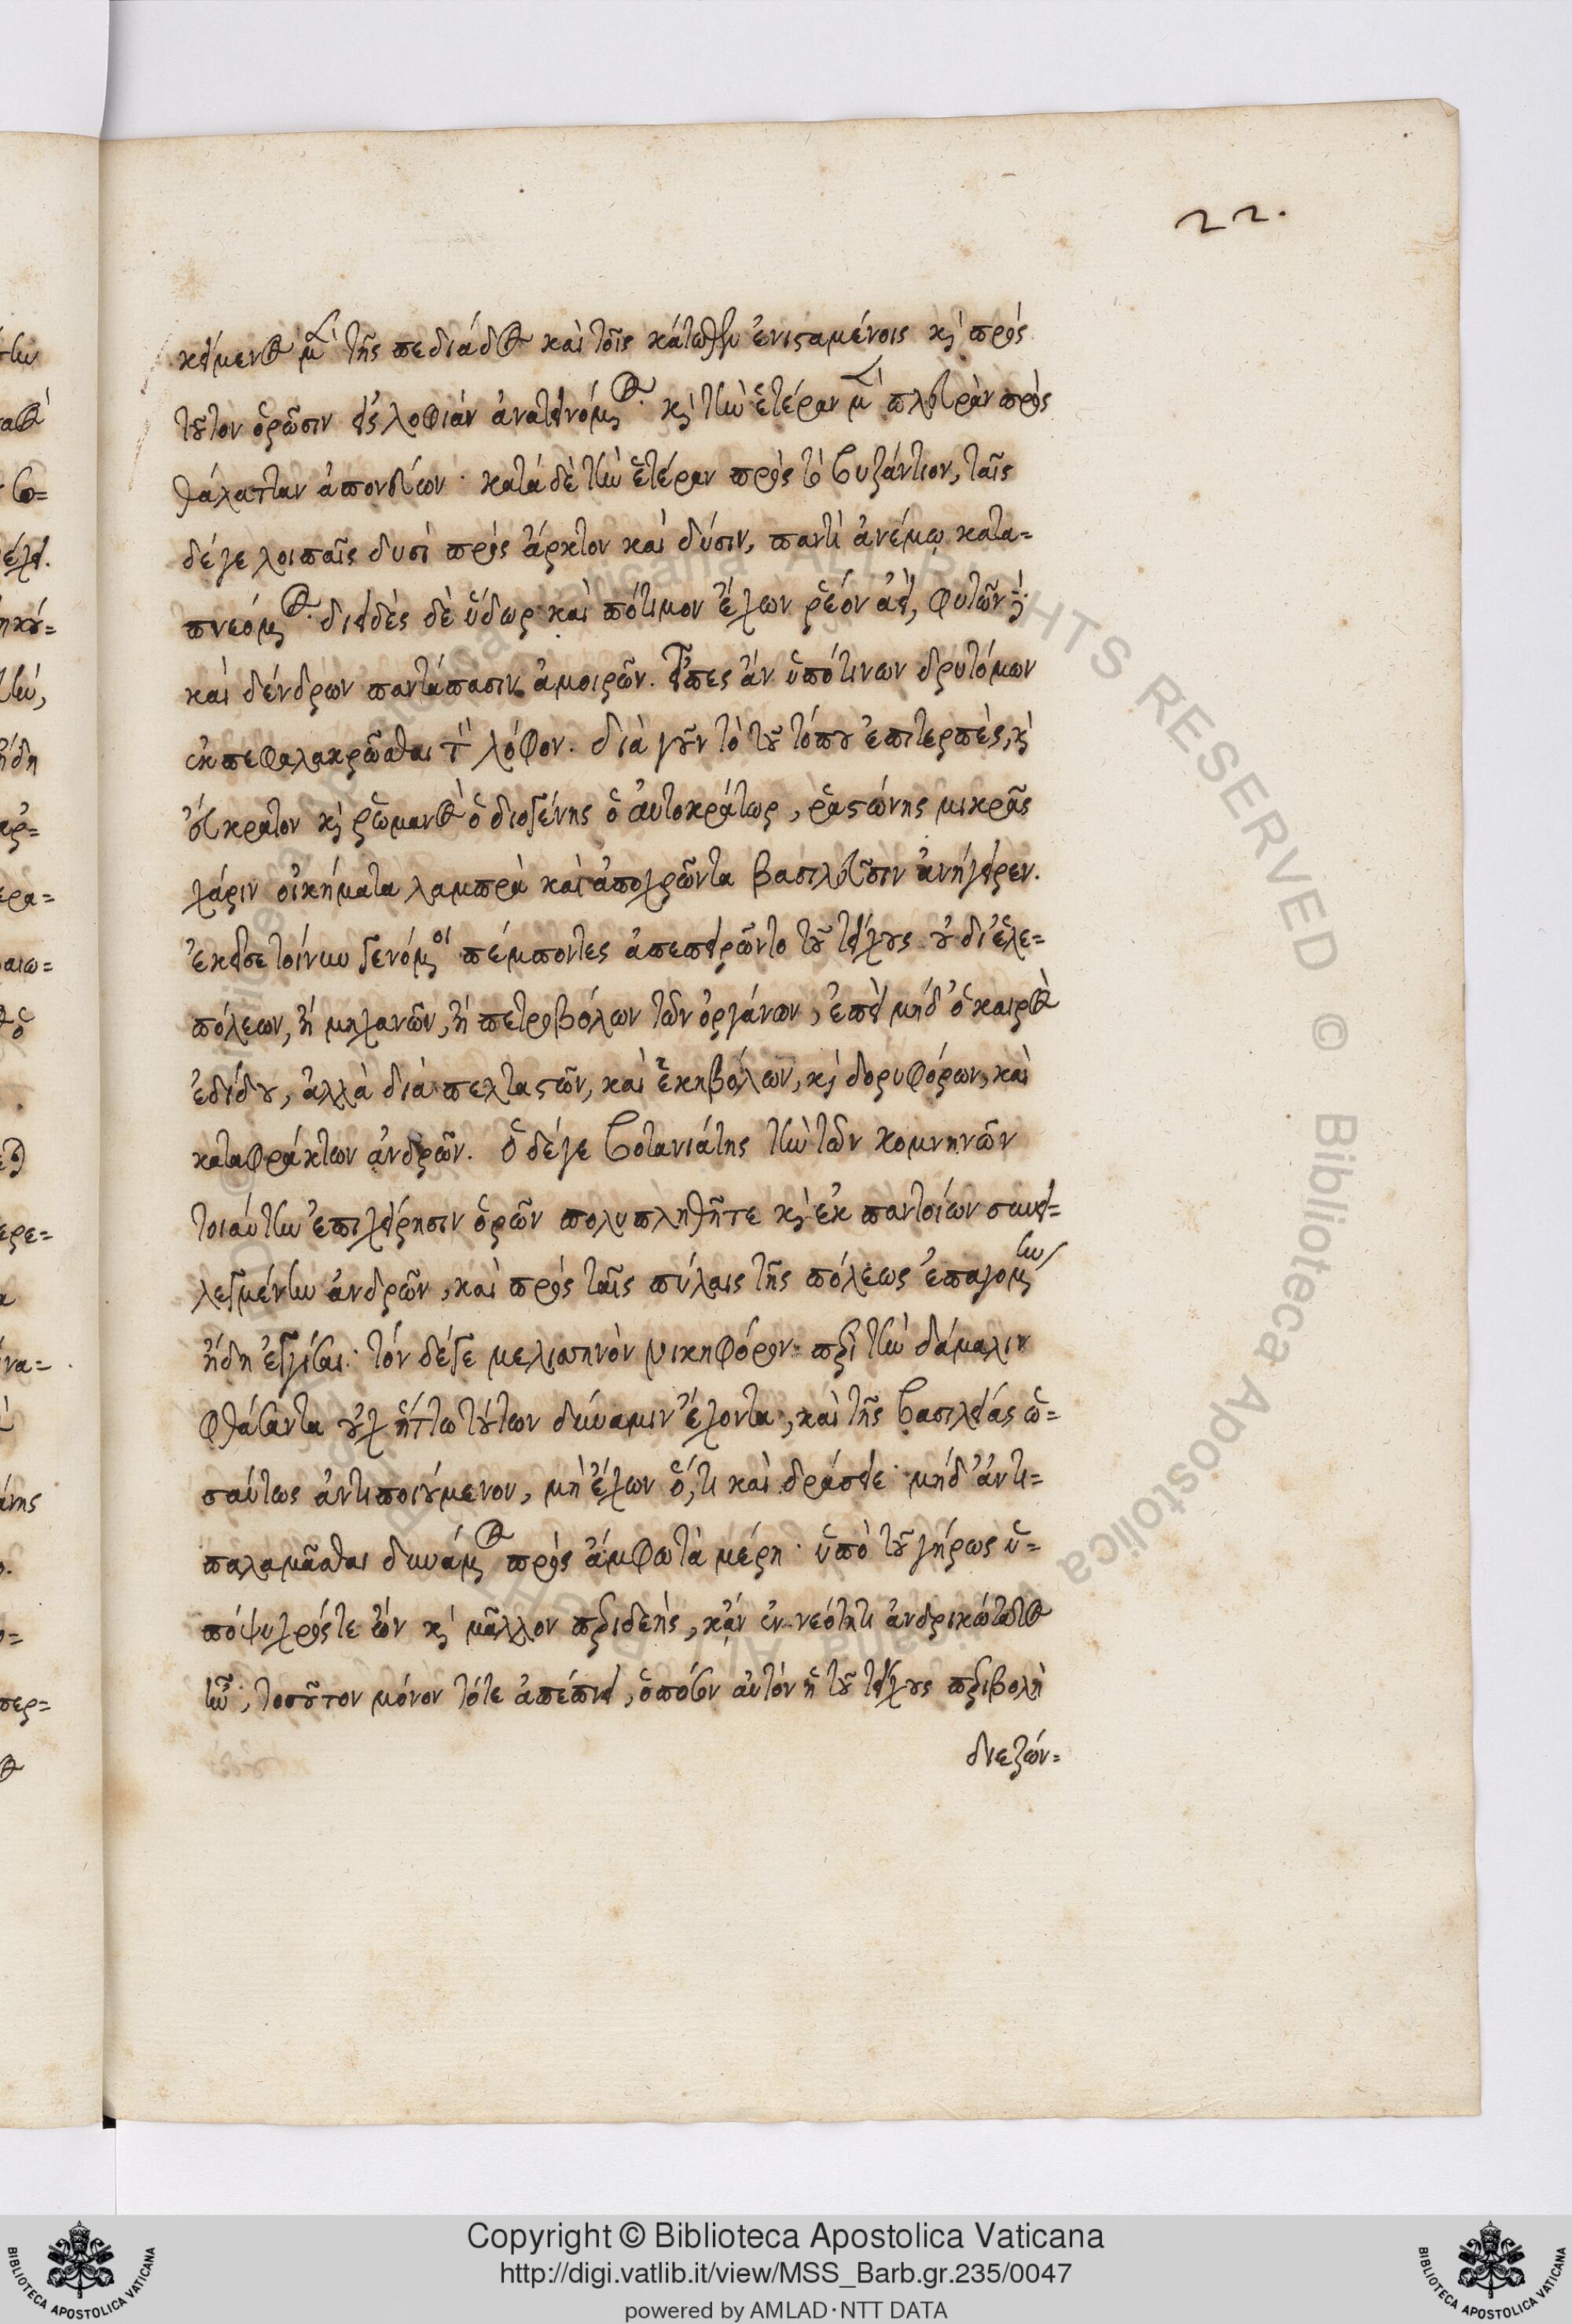 22.
κείμενος μὲν τῆς πεδιάδος καὶ τοῖς κάτωθεν ἐνισταμένοις καὶ πρὸς
τοῦτον ὁρῶσιν εἰς λοφιὰν ἀνατεινόμενος· καὶ τὴν ἑτέραν μὲν πλευρὰν πρὸς
θάλατταν ἀπονεύων· κατὰ δὲ τὴν ἑτέραν πρὸς τὸ βυζάντιον, ταῖς
δέ γε λοιπαῖς δυσὶ πρὸς ἄρκτον καὶ δύσιν, παντὶ ἀνέμῳ κατα=
πνεόμενος· διειδὲς δὲ ὕδωρ καὶ πότιμον ἔχων ῥέον ἀεί, φυτῶν δὲ
καὶ δένδρων παντάπασιν ἀμοιρῶν. εἶπες ἂν ὑπό τινων δρυτόμων
ἐκπεφαλακρῶσθαι τὸν λόφον. διὰ γοῦν τὸ τοῦ τόπου ἐπιτερπὲς, καὶ
εὔκρατον καὶ ῥωμανὸς ὁ διογένης ὁ αὐτοκράτωρ, ῥαστώνης μικρᾶς
χάριν οἰκήματα λαμπρὰ καὶ ἀποχρῶντα βασιλεῦσιν ἀνήγειρεν.
ἐκεῖσε τοίνυν γενόμενοι πέμποντες ἀπεπειρῶντο τοῦ τείχους οὐ δι' ἑλε=
πόλεων, ἢ μηχανῶν, ἢ πετροβόλων τῶν ὀργάνων, ἐπεὶ μηδ' ὁ καιρὸς
ἐδίδου, ἀλλὰ διὰ πελταστῶν, καὶ ἑκηβόλων, καὶ δορυφόρων, καὶ
καταφράκτων ἀνδρῶν. ὁ δέ γε βοτανιάτης τὴν τῶν κομνηνῶν
τοιαύτην ἐπιχείρησιν ὁρῶν πολυπληθῆ τε καὶ ἐκ παντοίων συνει=
λεγμένην ἀνδρῶν, καὶ πρὸς ταῖς πύλαις τῆς πόλεως ἐπαγομένην
ἤδη ἐγγίσαι· τὸν δέ γε μελισηνὸν νικηφόρον περὶ τὴν δάμαλιν
φθάσαντα οὐχ ἥττω τούτων δύναμιν ἔχοντα, καὶ τῆς βασιλείας ὡ=
σαύτως ἀντιποιούμενον, μὴ ἔχων ὅ,τι καὶ δράσειε· μηδ' ἀντι=
παλαμᾶσθαι δυνάμενος πρὸς ἄμφω τὰ μέρη· ὑπὸ τοῦ γήρως ὑ=
πόψυχρός τε ὢν καὶ μᾶλλον περιδεὴς, κἂν ἐν νεότητι ἀνδρικώτατος
ἦν, τοσοῦτον μόνον τότε ἀπέπνει, ὁπόσον αὐτὸν ἡ τοῦ τείχους περιβολὴ
διεζών=
Copyright © Biblioteca Apostolica Vaticana
http://digi.vatlib.it/view/MSS_Barb.gr.235/0047
powered by AMLAD·NTT DATA
BIBLIOTECA APOSTOLICA VATICANA
BIBLIOTECA APOSTOLICA VATICANA